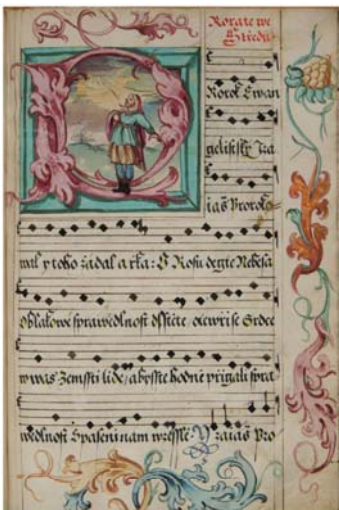 Rorate we
Středu
Prorok Ewan
geliſtſky Iza
iáš Prorok
wal y toho žádal a rka: O Roſu deyte Nebeſa
Oblakowe ſprawedlnoſt dſſtěte, otewři ſe Srdce
w was Zemſſti lide, abyſſte hodně přigali ſpra,
wedlnoſt Spaſeni nam wzeſſle. Yzaiáš Pro